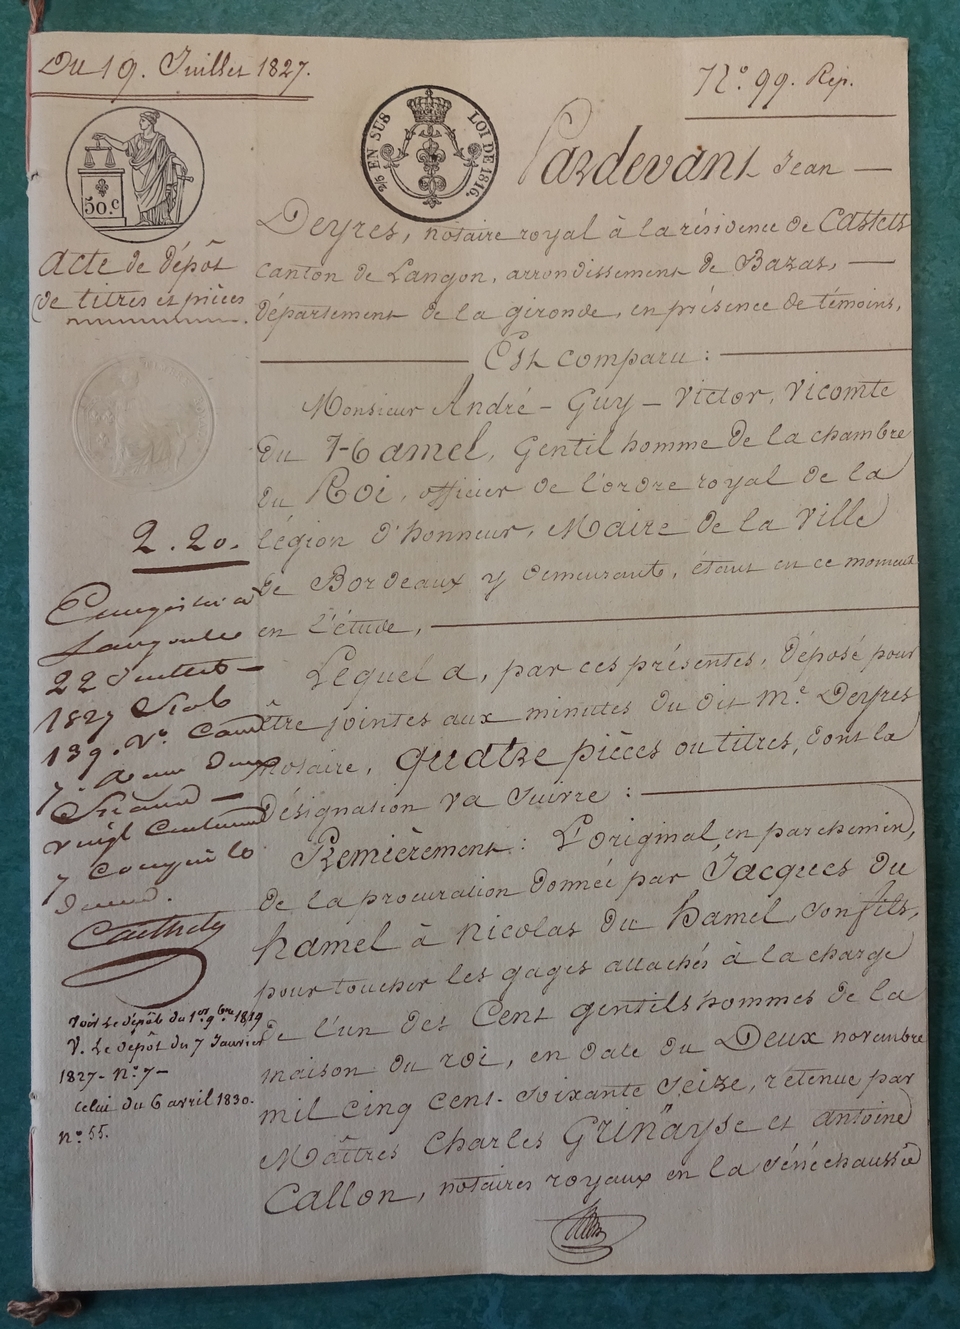 Du 19. Juillet 1827.
N.° 99. Rép.
2/5 EN SUS
LOI DE 1816.
50.c
Acte de dépôt
de titres et pièces
Pardevant Jean
Deyres, notaire royal à la résidence de Castets
canton de Langon, arrondissement de Bazas,
département de la gironde, en présence de témoins,
Est comparu :
Monsieur André - Guy - Victor, Vicomte
du Hamel, Gentil homme de la chambre
du Roi, officier de l'ordre royal de la
légion d'honneur, Maire de la Ville
de Bordeaux y demeurant, étant en ce moment
en l'étude,
Lequel a, par ces présentes, déposé pour
être jointes aux minutes du dit Me. Deyres
notaire, quatre pièces ou titres, dont la
désignation va suivre :
Premièrement : L'original, en parchemin,
de la procuration donnée par Jacques du
hamel à Nicolas du hamel, son fils,
pour toucher les gages attachés à la charge
de l'un des Cent gentilshommes de la
maison du roi, en date du Deux novembre
mil cinq cent-soixante seize, retenue par
Maîtres Charles Grinäyse et antoine
Callon, notaires royaux en la sénéchaussée
2.20.
Enregistré à
Langon le
22 Juillet
1827
139. Vo.
vingt Centimes
Voir le dépôt du 1er 9bre 1819
V. Le dépôt du 7 Janvier
1827 - no. 7 -
celui du 6 avril 1830.
no. 55.